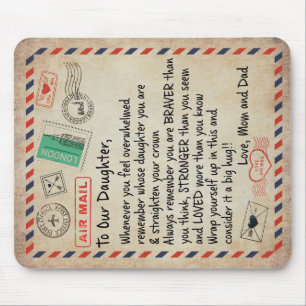 LONDON
AIR MAIL
To Our Daughter,
Whenever you feel overwhelmed
remember whose daughter you are
& straighten your crown
Always remember you are BRAVER than
you think, STRONGER than you seem
and LOVED more than you know
Wrap yourself up in this and
consider it a big hug!!
Love, Mom and Dad